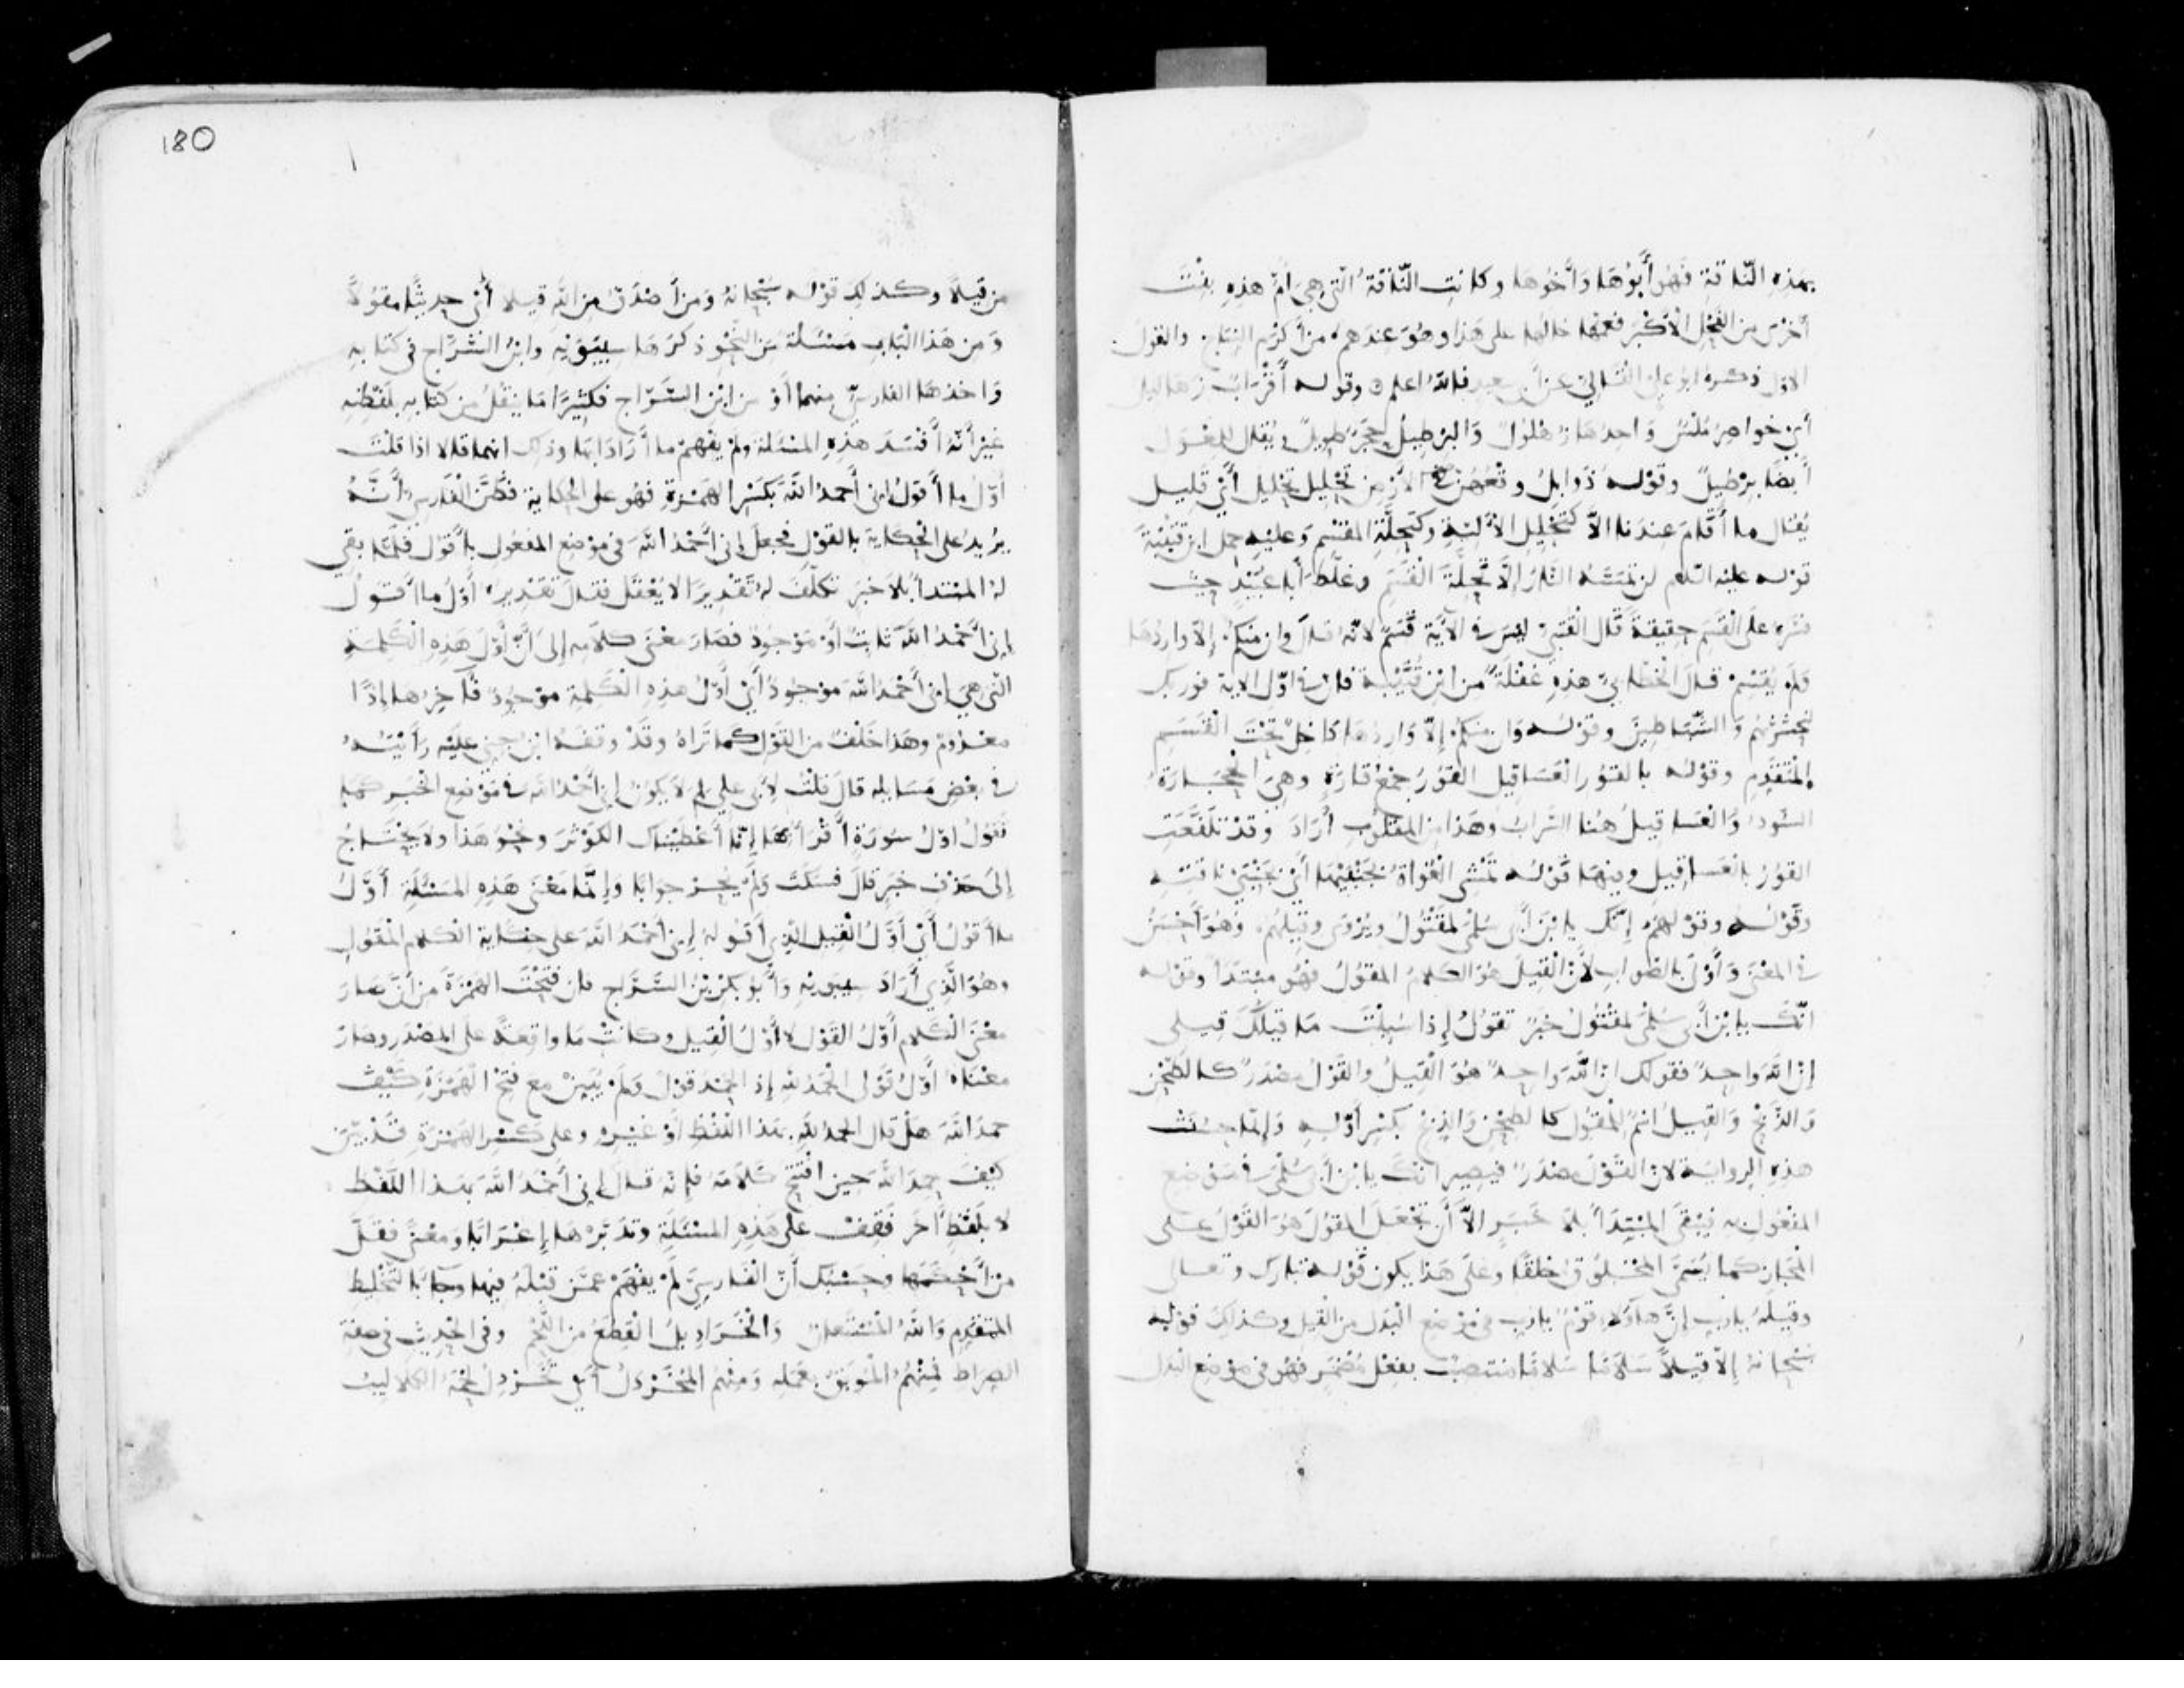 بهذِهِ النّاقةِ فَهُو أَبُوهَا وَأَخُوها وكانتِ النّاقَةُ الّتي هِيَ أُمّ هذِهِ بِنْتَ
أخرى من الفَحْلِ الأكْبَر فعمّها خالها على هَذا وهُوَ عندهم من أكرم النتاج والقول
الاوّل ذكره ابو علي القالي عن أبي سعيد فالله اعلم وقوله أَقْرَابٌ زهاليل
أي خواصر مُلْسٌ وَاحدهَا زهْلُولٌ وَالبِرْطِيلُ حجَرٌ طويلٌ ويُقال للمِعْوَل
أيضًا بِرْطِيلٌ وقوْله ذَوابِلٌ وقعُهُنّ الأرْض تَحْليل تحليل أَيْ قَليل
يُقال ما أقامَ عندَنا الاّ كتَحْلِيل الأَلِيَّةِ وكتَحِلَّةِ المُقْسِم وَعليْهِ حمل ابن قتَيْبَةَ
قوْله عليْه السلام لن تمَسَّهُ النّارُ إلّا تَحِلَّةَ القَسَمِ وغلّط أبا عُبَيْدٍ حيْث
فسّره على القَسَم حقيقةً قال القُتَبيّ ليْسَ في الآية قَسَمٌ لأنّهُ قال وان منكم إلّا وارِدُهَا
وَلم يُقسِم قال الخطّابيّ هذِهِ غفْلَةٌ من ابْنِ قُتَيْبَة فان في اوّل الاية فوربك
لنحشُرَنّهُم وَالشّيَاطِينَ وقوْله وَان منكم إلّا وَارِدُهَا دَاخلٌ تحْتَ القَسَم
المُتقدِّم وقوْلُه بالقُور العَسَاقيل القُورُ جمْعُ قارَةٍ وهي الحجَارَةُ
السّود وَالعسَاقِيلُ هُنا السَّرابُ وهَذا من المقلوب أَرَادَ وقدْ تلَفَّعَتِ
القورُ بالعَسَاقِيلِ وفيها قوْله تمْشي الغُوَاةُ بجَنْبَيْهَا أَيْ بجَنْبَيْ ناقَتِه
وقوْلُه وقوْلهم إنّكَ يا بْنَ أبي سُلْمَى لَمقْتُولُ ويُرْوَى وقِيلُهُم وَهُوَ أَحْسَنُ
في المعْنَى وَأَوْلَى بالصَّوابِ لأَنّ القِيلَ هُوَ الكلامُ المقُولُ فهُو مبْتدأٌ وقوْله
انّكَ يا بْنَ أبي سُلْمَى لمقْتُولُ خبَرٌ تقُولُ إذا سُئِلْتَ مَا قيلُكَ قيلى
إنّ اللهَ واحدٌ فقولك انّ اللهَ واحدٌ هُوَ القيلُ والقَوْلُ مصْدَرٌ كالطّحْن
وَالذَّبْحِ وَالقيلُ اسمٌ للمقُول كالطِّحْنِ وَالذِّبْحِ بكَسْرِ أَوّلِهِ وَإنّما حسُنَتْ
هذه الروايَة لانّ القَوْلَ مصْدَرٌ فيصير انّكَ يا بْن أبي سُلْمَى في مَوْضع
المفْعُول به فيَبْقَى المبْتدَأُ بلَا خَبَرٍ الّا أَن تجْعلَ المقُولَ هُوَ القَوْلُ عَلى
المجاز كما يُسَمّى المخْلُوقُ خلْقًا وعَلَى هَذا يكون قَوْلُه تبارك وتعالى
وقيلهُ يا رَبِ إنّ هَؤلَاءِ قَوْمٌ يا رَب في مَوْضع البَدَل من القِيل وكذلِكَ قوْله
سُبْحانه إلّا قيلًا سَلَامًا سَلَامًا منتصِبٌ بفِعْلٍ مُضْمَرٍ فهُو في مَوْضع البدَل
180
من قيلًا وكذلِكَ قوْله سُبْحَانهُ وَمن أَصْدَقُ من اللهِ قيلًا أيْ حديثًا مقُولًا
وَمن هَذا البَاب مسْئَلَةٌ من النّحْو ذكرَهَا سِيبَوَيْهِ وابْنُ السَّرَّاج في كتابِهِ
وَاخذهَا الفارسيّ منهما أَوْ من ابْن السَّرَّاج فكثيرًا مَا ينْقُلُ من كتابه بلفْظه
غيْرَ أَنّهُ أَفْسَدَ هَذِهِ المسْئلة ولم يفْهمْ ما أَرَادَا بهَا وذلِك انهما قالا اذا قلْتَ
أَوّلُ ما أَقولُ إنّي أَحمدُ اللهَ بكسْر الهمْزةِ فهُو على الحكاية فظَنَّ الفارسيّ أَنّهُ
يريدُ على الحكايَة بالقَوْل فجعلَ إنّي أحْمَدُ اللهَ في مَوْضع المفْعُول بأقول فلمّا بقي
لهُ المبْتدأُ بلا خَبَر تكلّفَ لهُ تقْديرًا لا يُعْقَل فقال تقديره أَوّلُ ما أقول
إنّي أَحْمَدُ اللهَ ثابتٌ أوْ مَوْجُودٌ فصَارَ معْنى كلامه إلى أنّ أَوّلَ هَذِهِ الكلمة
التي هي إنّي أَحْمَدُ اللهَ موْجُودٌ أَيْ أَوّلُ هذِهِ الكلمة موْجُودٌ فآخِرُها إذًا
معْدُومٌ وهَذا خَلْفٌ من القَوْلِ كما تَراهُ وقَدْ وقفَهُ ابْنُ جِنّي عليْه رَأَيْتُهُ
في بعْض مسَايِله قالَ قلْتُ لأَبي علي لم لَا يكون إنّي أحْمدُ الله في موْضِع الخَبر كما
تَقُولُ اوّلُ سُورَةٍ أَقْرَأُهَا إنّا أَعْطَيْناك الكَوْثَرَ ونحْو هَذا ولَا يحْتَاجُ
إلى حَذفِ خَبَرٍ قالَ فسَكَتَ ولم يُحِرْ جوَابًا وَإنّما معْنَى هَذِهِ المَسْئلَة أَوّلُ
ما أَقُولُ أَيْ أَوَّلُ القيل الّذي أَقُولهُ إنّي أَحْمَدُ اللهَ على حكاية الكلام المقُولِ
وهُوَ الّذي أَرَادَ سيبويه وَأَبُو بكْر بْنُ السَّرّاج فان فتحْتَ الهمْزَةَ من أنّ صَارَ
معْنَى الكَلام أَوّلُ القَوْل لا أوّلُ القِيل وكانَتْ مَا واقعةً على المصْدَر وصَارَ
معْنَاهُ أَوّلُ قَوْلي الحَمْدُ للهِ إذ الحَمْدُ قوْلٌ وَلم يُبَيِّنْ مع فتْحِ الهَمْزَةِ كيْفَ
حمدَ اللهَ هلْ قال الحمدُ للهِ بهذا اللفْظ أوْ غيْرِهِ وعلى كسْر الهمْزَةِ قَدْ بيّنَ
كيْفَ حمِدَ اللهَ حينَ افْتتحَ كَلَامَهُ فإنّه قالَ إنّي أَحْمَدُ اللهَ بهَذا اللفْظ
لا بلَفْظٍ آخَر فَقِفْ على هَذِهِ المسْئَلَةِ وتدَبّرْهَا إعْرَابًا ومَعْنًى فقَلّ
من أَحْكَمَها وحَسْبُك أَنّ الفَارسيّ لَمْ يفْهَمْ عمّن قبْلهُ فيها وجَاءَ بالتّخليط
المتقدِّم وَاللهُ المُسْتَعانُ وَالخَرَادِيلُ القِطَعُ من اللّحْمِ وفي الحَديث في صفةِ
الصراط فمنْهُم المُوبَقُ بعمَله وَمنْهم المُخَرْدَلُ أَيْ تُخَرْدِلُ لحْمَهُ الكلاليبُ